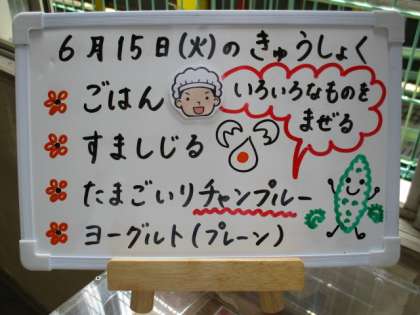 6月15日(火)のきゅうしょく
ごはん
いろいろなものを
まぜる
すましじる
たまごいりチャンプルー
ヨーグルト(プレーン)